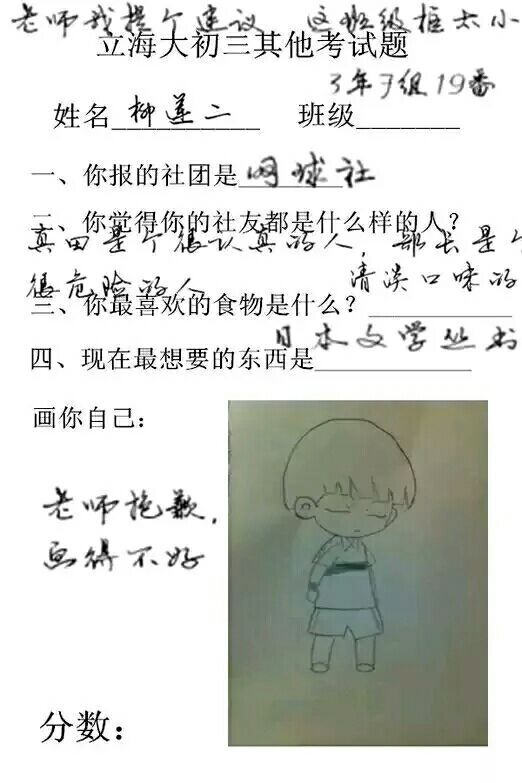 老师我提个建议 这班级框太小
立海大初三其他考试题
3年F组19番
姓名 柳莲二 班级
一、你报的社团是 网球社
二、你觉得你的社友都是什么样的人?
真田是个很认真的人,部长是个
很危险的人
清淡口味的
三、你最喜欢的食物是什么?
日本文学丛书
四、现在最想要的东西是
画你自己:
老师抱歉,
画得不好
分数: